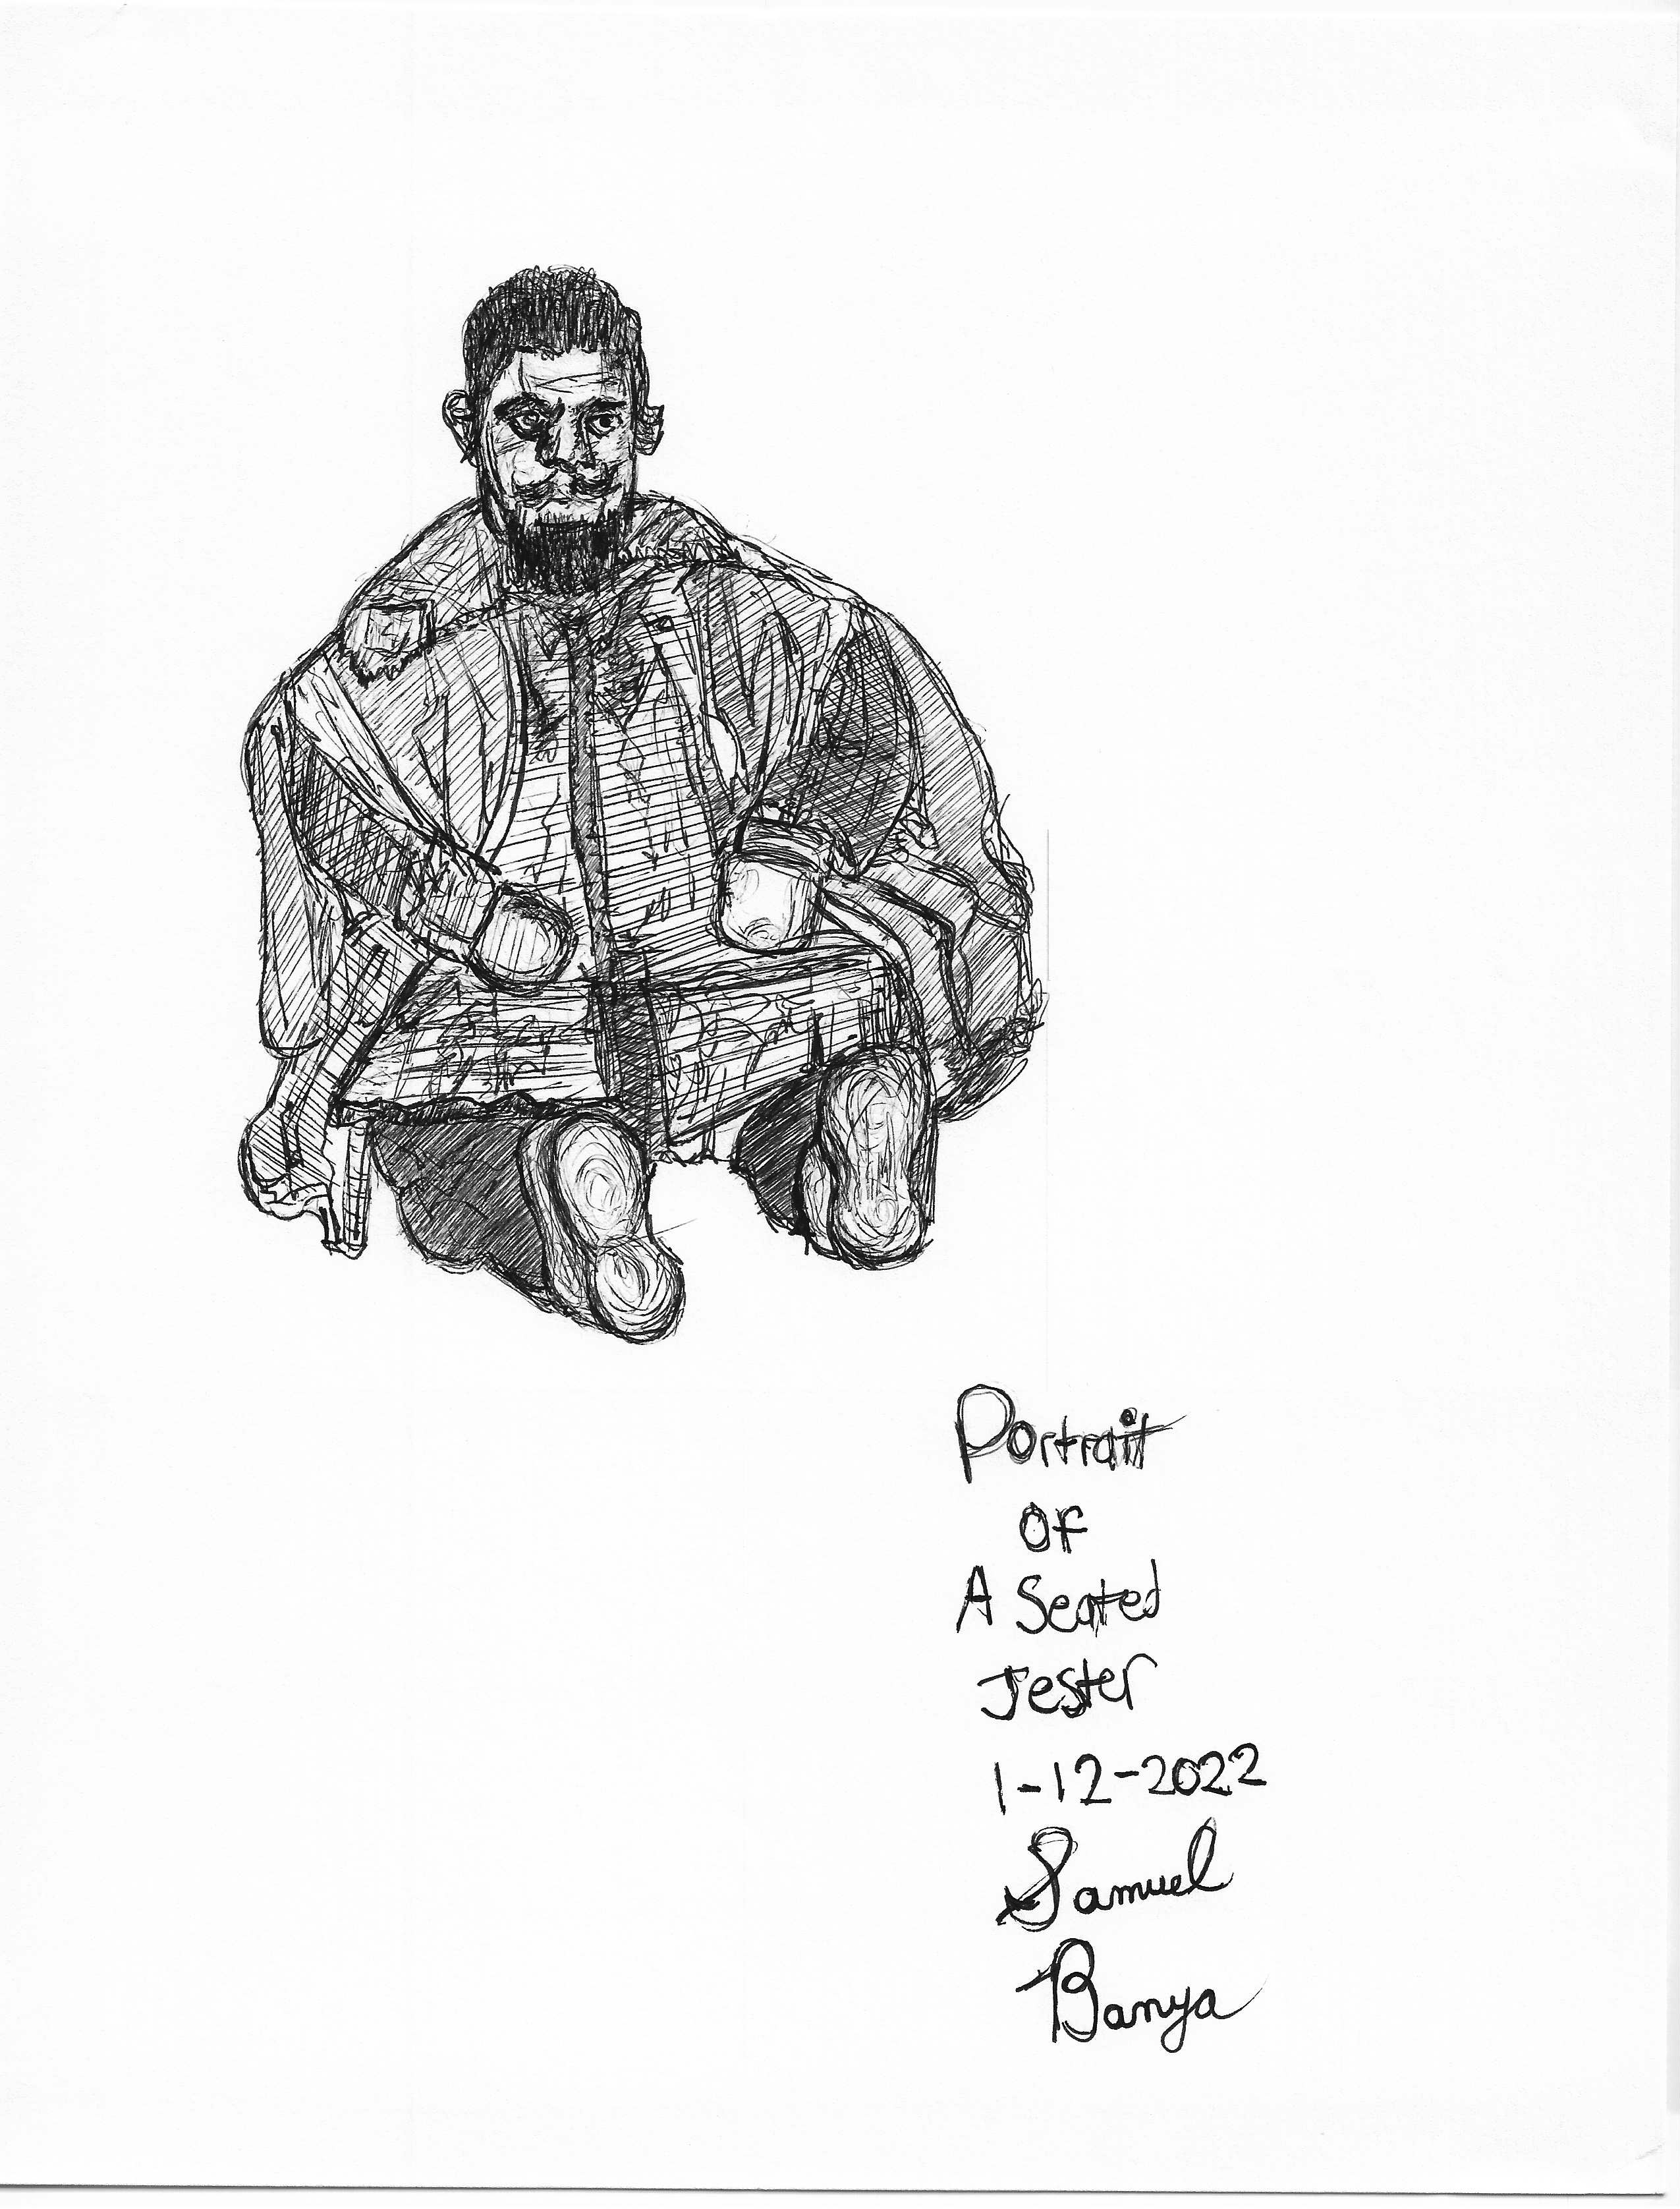 Portrait
Of
A Seated
Jester
1-12-2022
Samuel
Banya